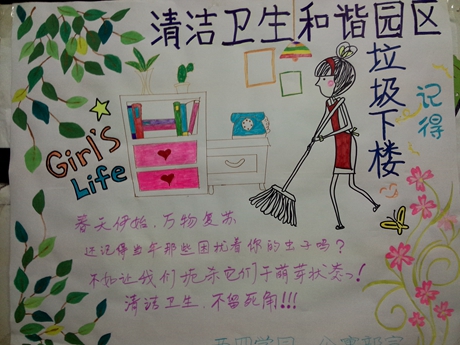 清洁卫生和谐园区
垃圾下楼
记得
Girl's
Life
春天伊始，万物复苏
还记得当年那些困扰着你的虫子吗？
不如让我们扼杀它们于萌芽状态！
清洁卫生，不留死角!!!